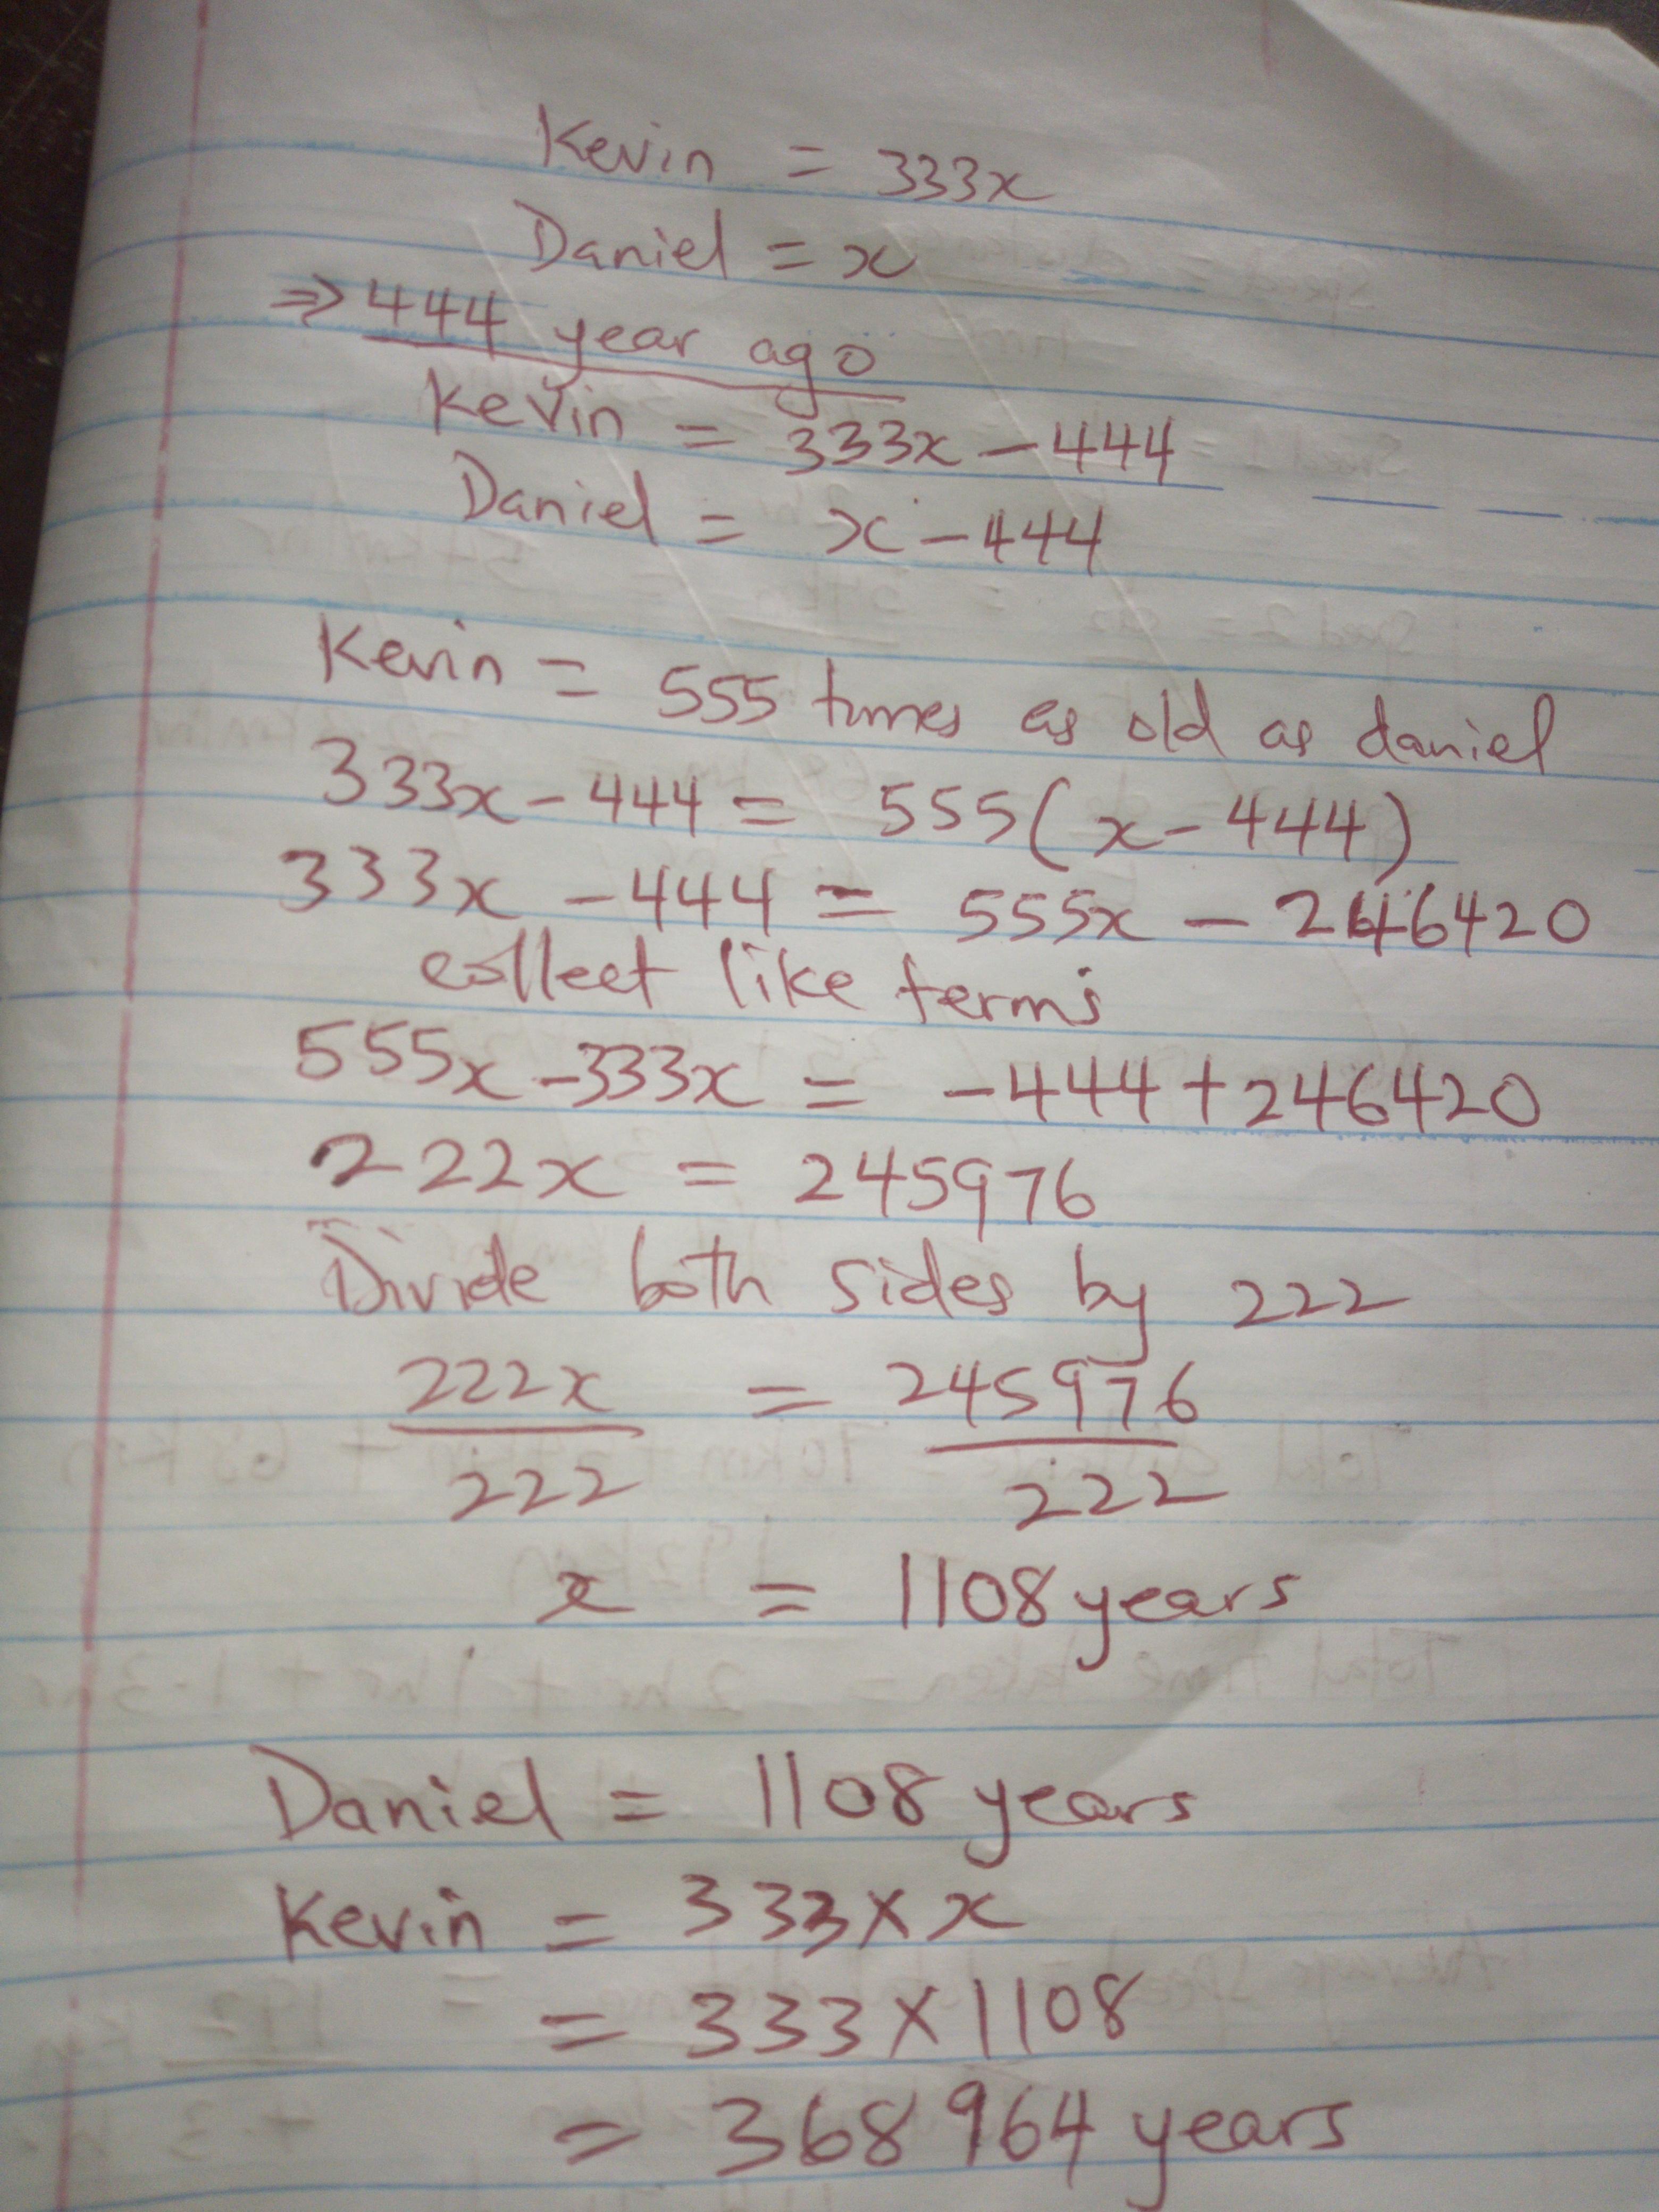 Kevin = 333x
Daniel = x
⇒ 444 year ago
Kevin = 333x - 444
Daniel = x - 444
Kevin = 555 times as old as daniel
333x - 444 = 555(x - 444)
333x - 444 = 555x - 246420
collect like terms
555x - 333x = -444 + 246420
222x = 245976
Divide both sides by 222
222x/222 = 245976/222
x = 1108 years
Daniel = 1108 years
Kevin = 333 × x
= 333 × 1108
= 368 964 years